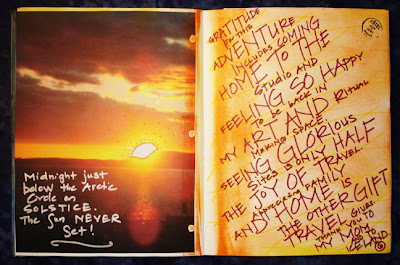 Midnight just
below the Arctic
Circle on
SOLSTICE.
The Sun NEVER
Set!
GRATITUDE
for this
ADVENTURE
includes coming
HOME TO THE
studio and
FEELING SO HAPPY
to be back in
MY ART AND RITUAL
making space.
SEEING GLORIOUS
sites is only HALF
THE JOY OF TRAVEL
AND HOME IS
THE OTHER GIFT
TRAVEL
thank you to
MY MOM
ICELAND